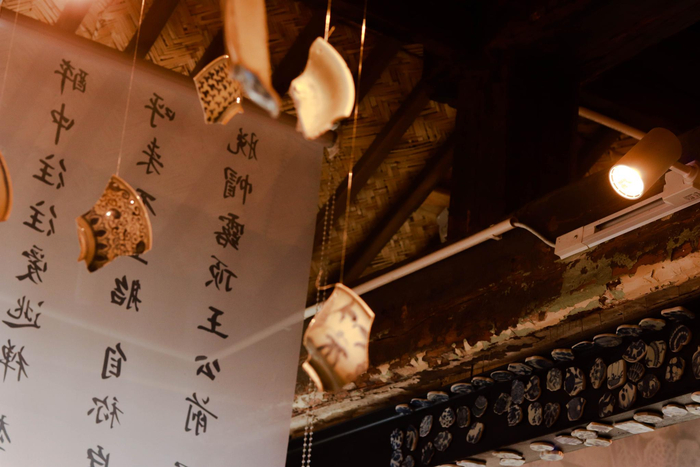 醉中往往爱逃禅
呼来不 船 自称
脱帽露顶王公前